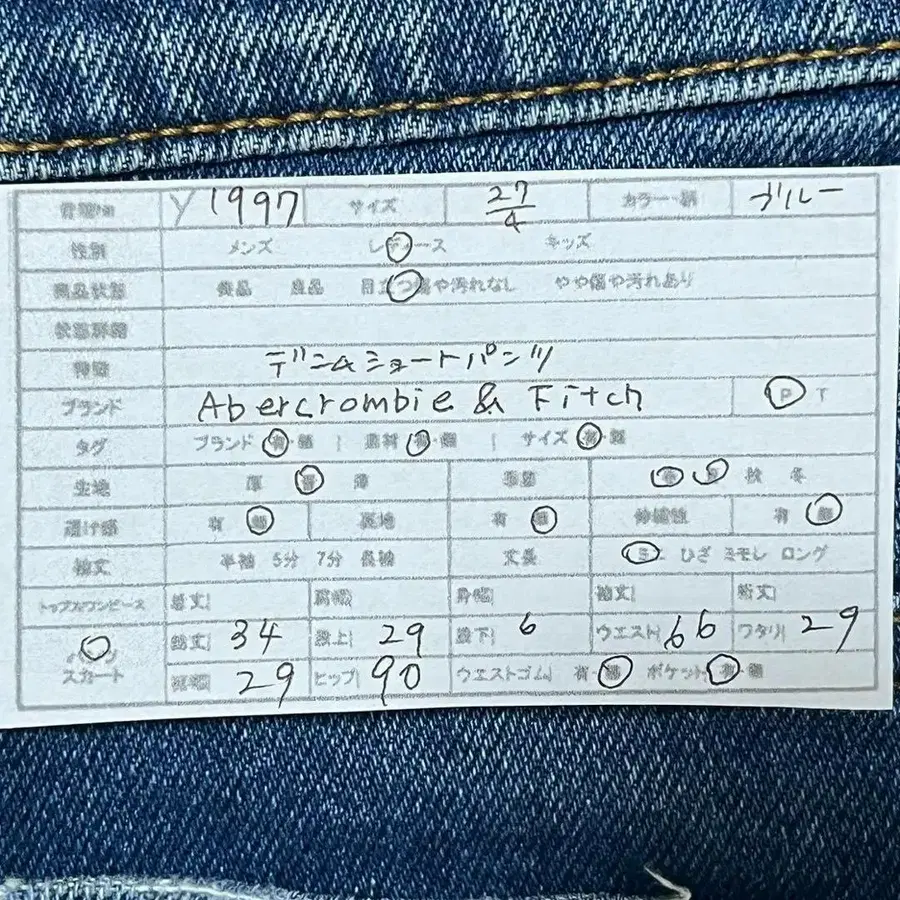 管理No Y1997 サイズ 27/4 カラー・柄 ブルー
性別 メンズ レディース キッズ
商品状態 美品 良品 目立つ傷や汚れなし やや傷や汚れあり
状態詳細
特徴 デニムショートパンツ
ブランド Abercrombie & Fitch P T
タグ ブランド 有・無 | 素材 有・無 | サイズ 有・無
生地 厚 普 薄 季節 春 夏 秋 冬
透け感 有 無 裏地 有 無 伸縮性 有 無
袖丈 半袖 5分 7分 長袖 丈長 ミニ ひざ ミモレ ロング
トップス/ワンピース 総丈 肩幅 身幅 袖丈 裄丈
パンツ 総丈 34 股上 29 股下 6 ウエスト 66 ワタリ 29
スカート 裾幅 29 ヒップ 90 ウエストゴム 有・無 ポケット 有・無